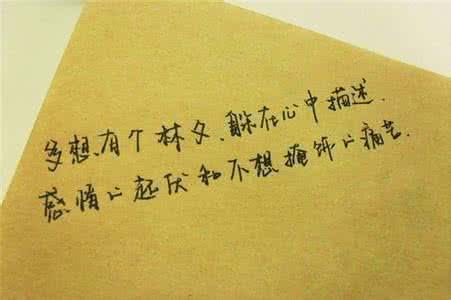 多想有个林夕、躲在心中描述、
感情的起伏和不想掩饰的痛苦.